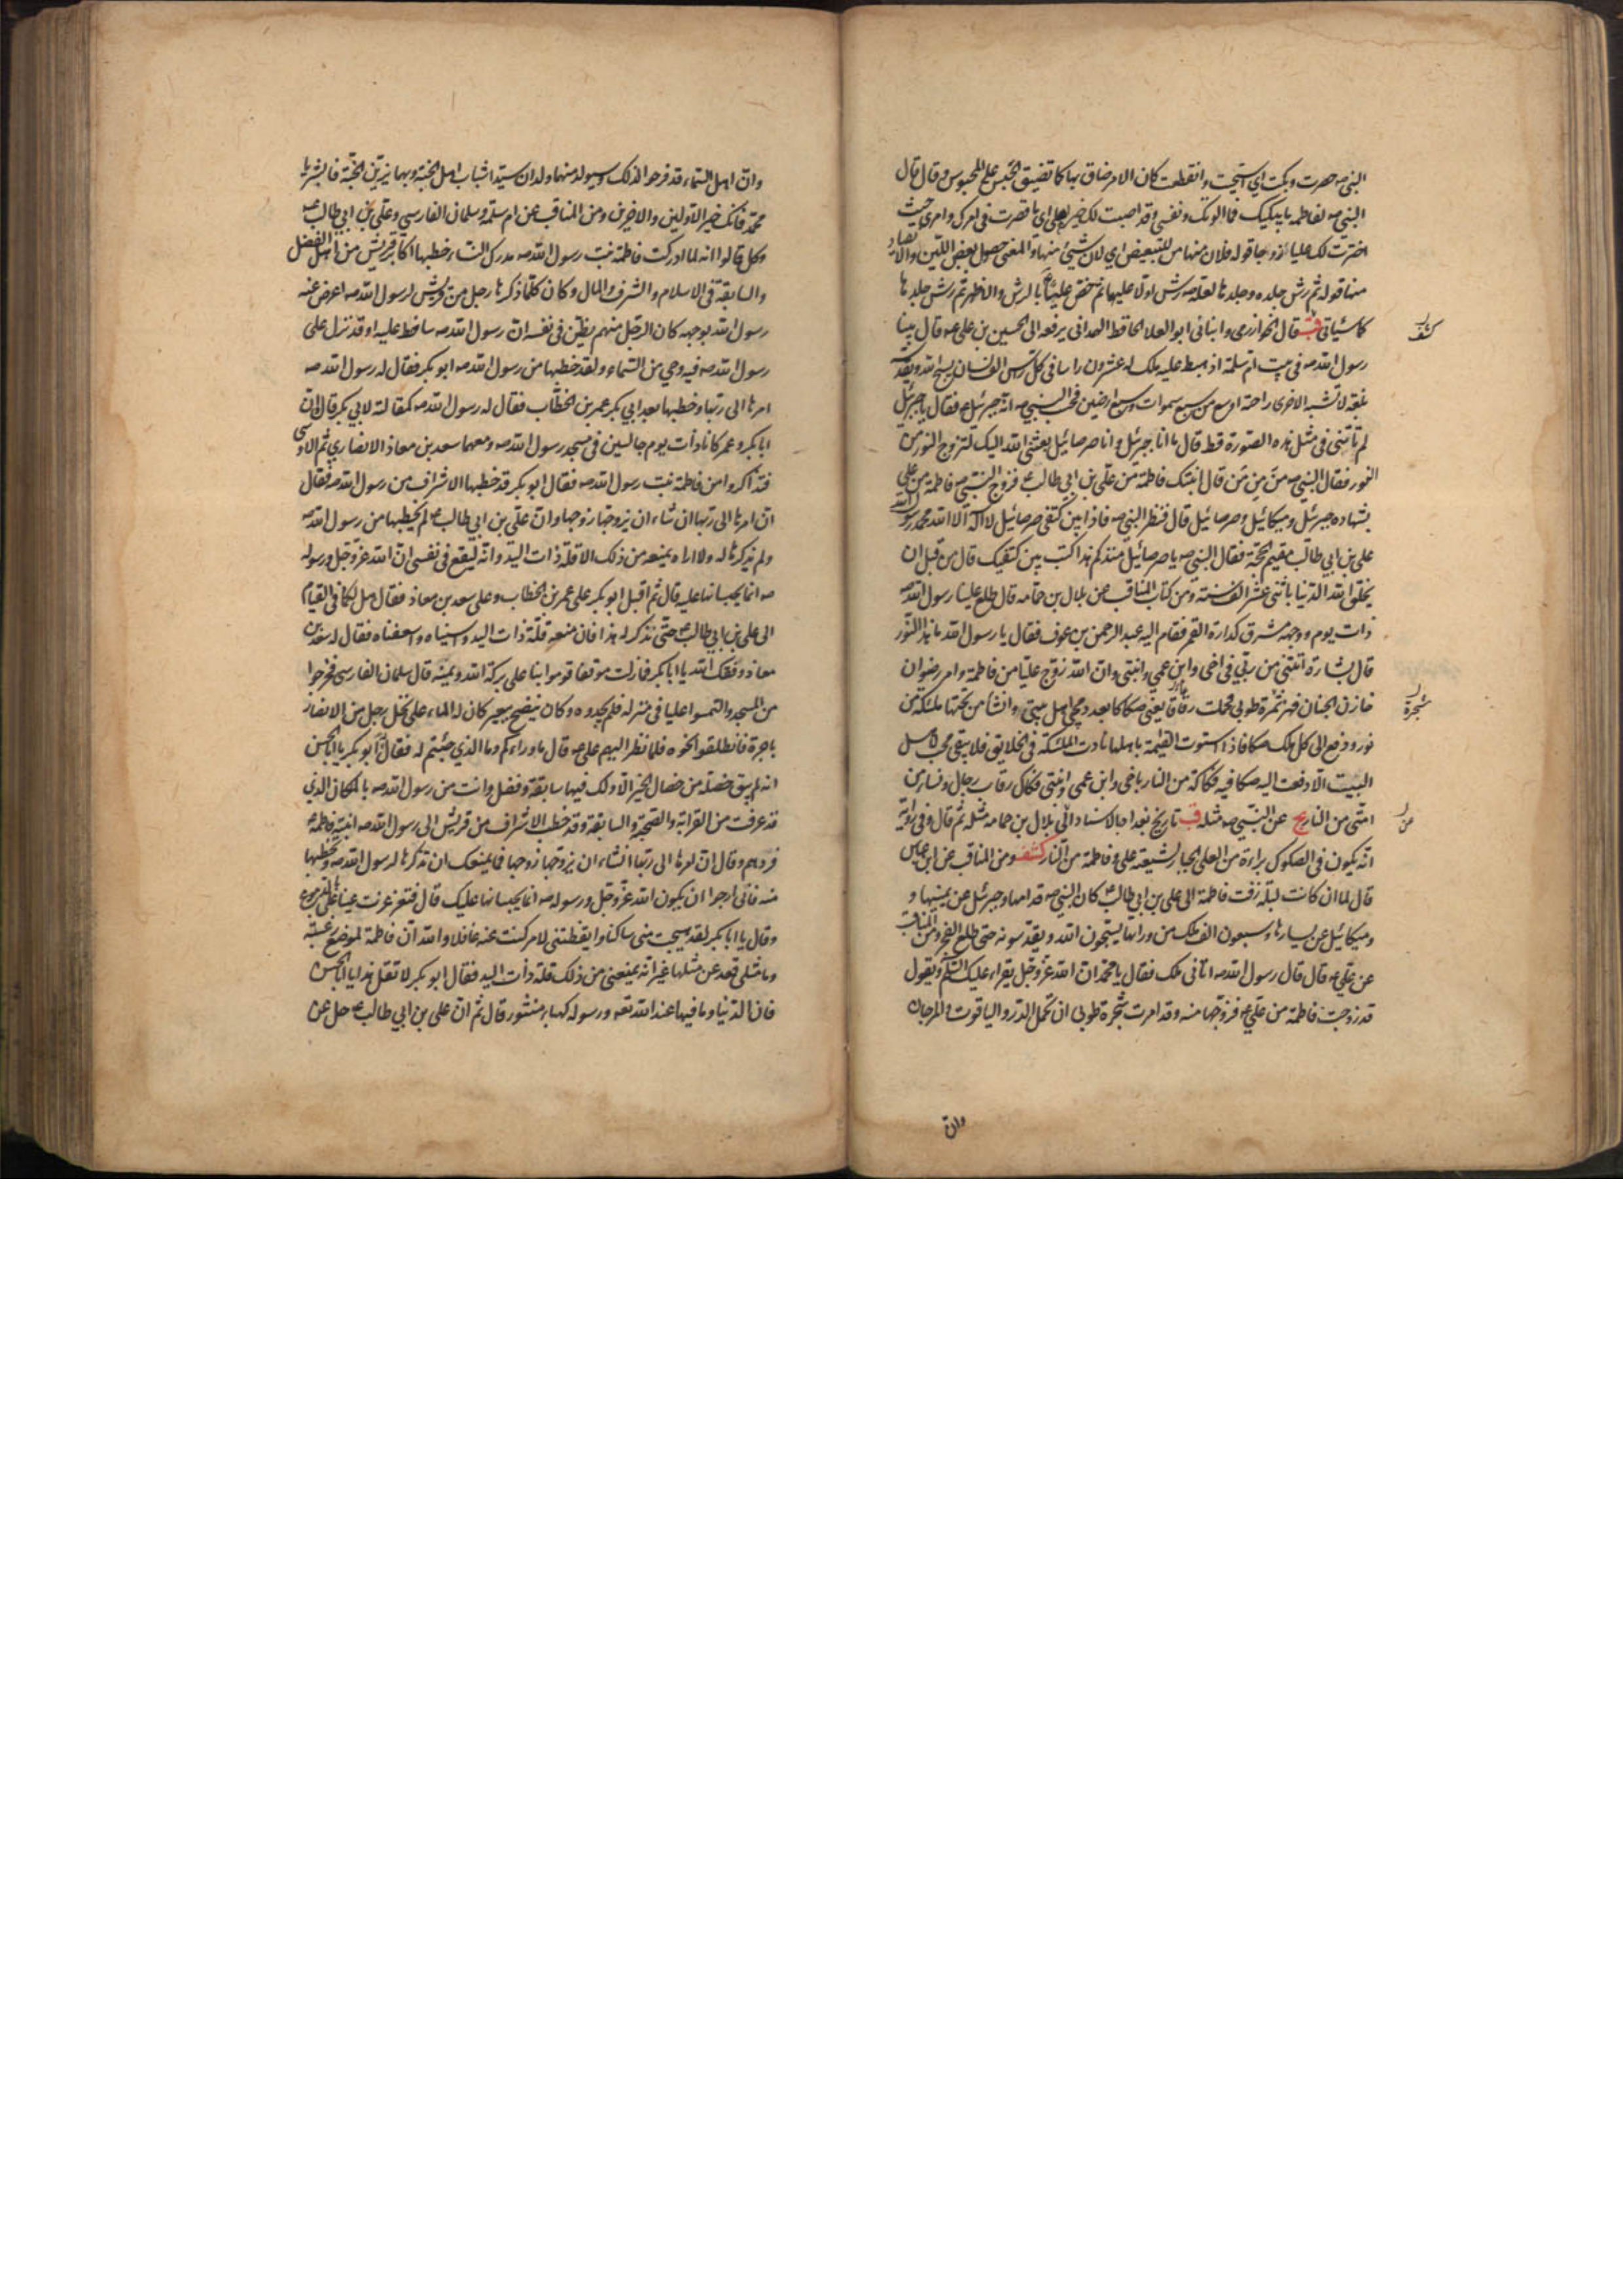 النبي صه حصرت وبكت اي استحيت وانقطعت كان الامر ضاق بها كما تضيق الحبس على المحبوس وقال قال
النبي صه لفاطمة ما يبكيك فما الوتك ونفسي وقد اصبت لك خير اهلي اي ما قصرت في امرك وامري حيث
اخترت لك عليا زوجا قوله فلان منها من للتبعيض اي لان شيئ منها والمعنى حصول بعض اللين والانقياد
منها قوله ثم رش جلده وجلدها لعله صه رش اولا عليهما ثم خص عليا ع بالرش والظهر ثم رش جلدها
كما سيأتي قب قال الخوارزمي وانباني ابو العلا الحافظ الهمداني يرفعه الى الحسين بن علي عه قال بينا
كشف
رسول الله صه في بيت ام سلمة اذ هبط عليه ملك له عشرون راسا في كل راس الف لسان يسبح الله ويقدسه
بلغة لا تشبه الاخرى راحته اوسع من سبع سموات وسبع ارضين فحسب النبي صه انه جبرئيل ع فقال يا جبرئيل
لم تاتني في مثل هذه الصورة قط قال ما انا جبرئيل وانا صرصائيل بعثني الله اليك لتزوج النور من
النور فقال النبي صه من من من قال ابنتك فاطمة من علي بن ابي طالب ع فزوج النبي صه فاطمة من علي
بشهادة جبرئيل وميكائيل وصرصائيل قال فنظر النبي صه فاذا بين كتفي صرصائيل لا اله الا الله محمد رسول الله
علي بن ابي طالب مقيم الحجة فقال النبي صه يا صرصائيل منذ كم هذا كتب بين كتفيك قال من قبل ان
يخلق الله الدنيا باثني عشر الف سنة ومن كتاب المناقب عن بلال بن حمامة قال طلع علينا رسول الله صه
ذات يوم ووجهه مشرق كدارة القمر فقام اليه عبد الرحمن بن عوف فقال يا رسول الله ما هذا النور
قال بشارة اتتني من ربي في اخي وابن عمي وابنتي وان الله زوج عليا من فاطمة وامر رضوان
خازن الجنان فهز شجرة طوبى فحملت رقاقا يعني صكاكا بعدد محبي اهل بيتي وانشا من تحتها ملئكة من
شجرة
نور ودفع الى كل ملك صكا فاذا استوت القيمة باهلها نادت الملئكة في الخلايق فلا يبقى محب لاهل
البيت الا دفعت اليه صكا فيه فكاكه من النار باخي وابن عمي وابنتي فكاك رقاب رجال ونساء من
امتي من النار يج عن النبي صه مثله قب تاريخ بغداد بالاسناد الى بلال بن حمامة مثله ثم قال وفي رواية
انه يكون في الصكوك براءة من العلي الجبار لشيعة علي وفاطمة من النار كشف ومن المناقب عن ابن عباس
قال لما ان كانت ليلة زفت فاطمة الى علي بن ابي طالب ع كان النبي صه قدامها وجبرئيل عن يمينها و
وميكائيل عن يسارها وسبعون الف ملك من ورائها يسبحون الله ويقدسونه حتى طلع الفجر ومن المناقب
عن علي ع قال قال رسول الله صه اتاني ملك فقال يا محمد ان الله عز وجل يقراء عليك السلم ويقول
قد زوجت فاطمة من علي ع فزوجها منه وقد امرت شجرة طوبى ان تحمل الدر والياقوت والمرجان
وان
وان اهل السماء قد فرحوا لذلك وسيولد منهما ولدان سيدا شباب اهل الجنة وبهما يزين الجنة فابشر يا
محمد فانك خير الاولين والاخرين ومن المناقب عن ام سلمة وسلمان الفارسي وعلي بن ابي طالب عه
وكل قالوا انه لما ادركت فاطمة بنت رسول الله صه مدرك النساء خطبها اكابر قريش من اهل الفضل
والسابقة في الاسلام والشرف والمال وكان كلما ذكرها رجل من قريش لرسول الله صه اعرض عنه
رسول الله بوجهه كان الرجل منهم يظن في نفسه ان رسول الله صه ساخط عليه او قد نزل على
رسول الله صه فيه وحي من السماء ولقد خطبها من رسول الله صه ابو بكر فقال له رسول الله صه
امرها الى ربها وخطبها بعد ابي بكر عمر بن الخطاب فقال له رسول الله صه كمقالته لابي بكر قال وان
ابا بكر وعمر كانا ذات يوم جالسين في مسجد رسول الله صه ومعهما سعد بن معاذ الانصاري ثم الاوسي
فتذاكروا من فاطمة بنت رسول الله صه فقال ابو بكر قد خطبها الاشراف من رسول الله صه فقال
ان امرها الى ربها ان شاء ان يزوجها زوجها وان علي بن ابي طالب ع لم يخطبها من رسول الله صه
ولم يذكرها له ولا اراه يمنعه من ذلك الا قلة ذات اليد وانه ليقع في نفسي ان الله عز وجل ورسوله
صه انما يحبسانها عليه قال ثم اقبل ابو بكر على عمر بن الخطاب وعلى سعد بن معاذ فقال هل لكما في القيام
الى علي بن ابي طالب ع حتى نذكر له هذا فان منعه قلة ذات اليد واسيناه واسعفناه فقال له سعد بن
معاذ وفقك الله يا ابا بكر فما زلت موفقا قوموا بنا على بركة الله ويمنه قال سلمان الفارسي فخرجوا
من المسجد والتمسوا عليا في منزله فلم يجدوه وكان ينضح ببعير كان له الماء على نخل رجل من الانصار
باجرة فانطلقوا نحوه فلما نظر اليهم علي عه قال ما وراءكم وما الذي جئتم له فقال ابو بكر يا ابا الحسن
انه لم يبق خصلة من خصال الخير الا ولك فيها سابقة وفضل وانت من رسول الله صه بالمكان الذي
قد عرفت من القرابة والصحبة والسابقة وقد خطب الاشراف من قريش الى رسول الله صه ابنته فاطمة ع
فردهم وقال ان امرها الى ربها انشاء ان يزوجها زوجها فما يمنعك ان تذكرها لرسول الله صه وتخطبها
منه فاني ارجوا ان يكون الله عز وجل ورسوله صه انما يحبسانها عليك قال فتغرغرت عينا علي بالدموع
وقال يا ابا بكر لقد هيجت مني ساكنا وايقظتني لامر كنت عنه غافلا والله ان فاطمة لموضع رغبة
وما مثلي قعد عن مثلها غير انه يمنعني من ذلك قلة ذات اليد فقال ابو بكر لا تقل هذا يا ابا الحسن
فان الدنيا وما فيها عند الله تعه ورسوله كهباء منثور قال ثم ان علي بن ابي طالب ع حل عن